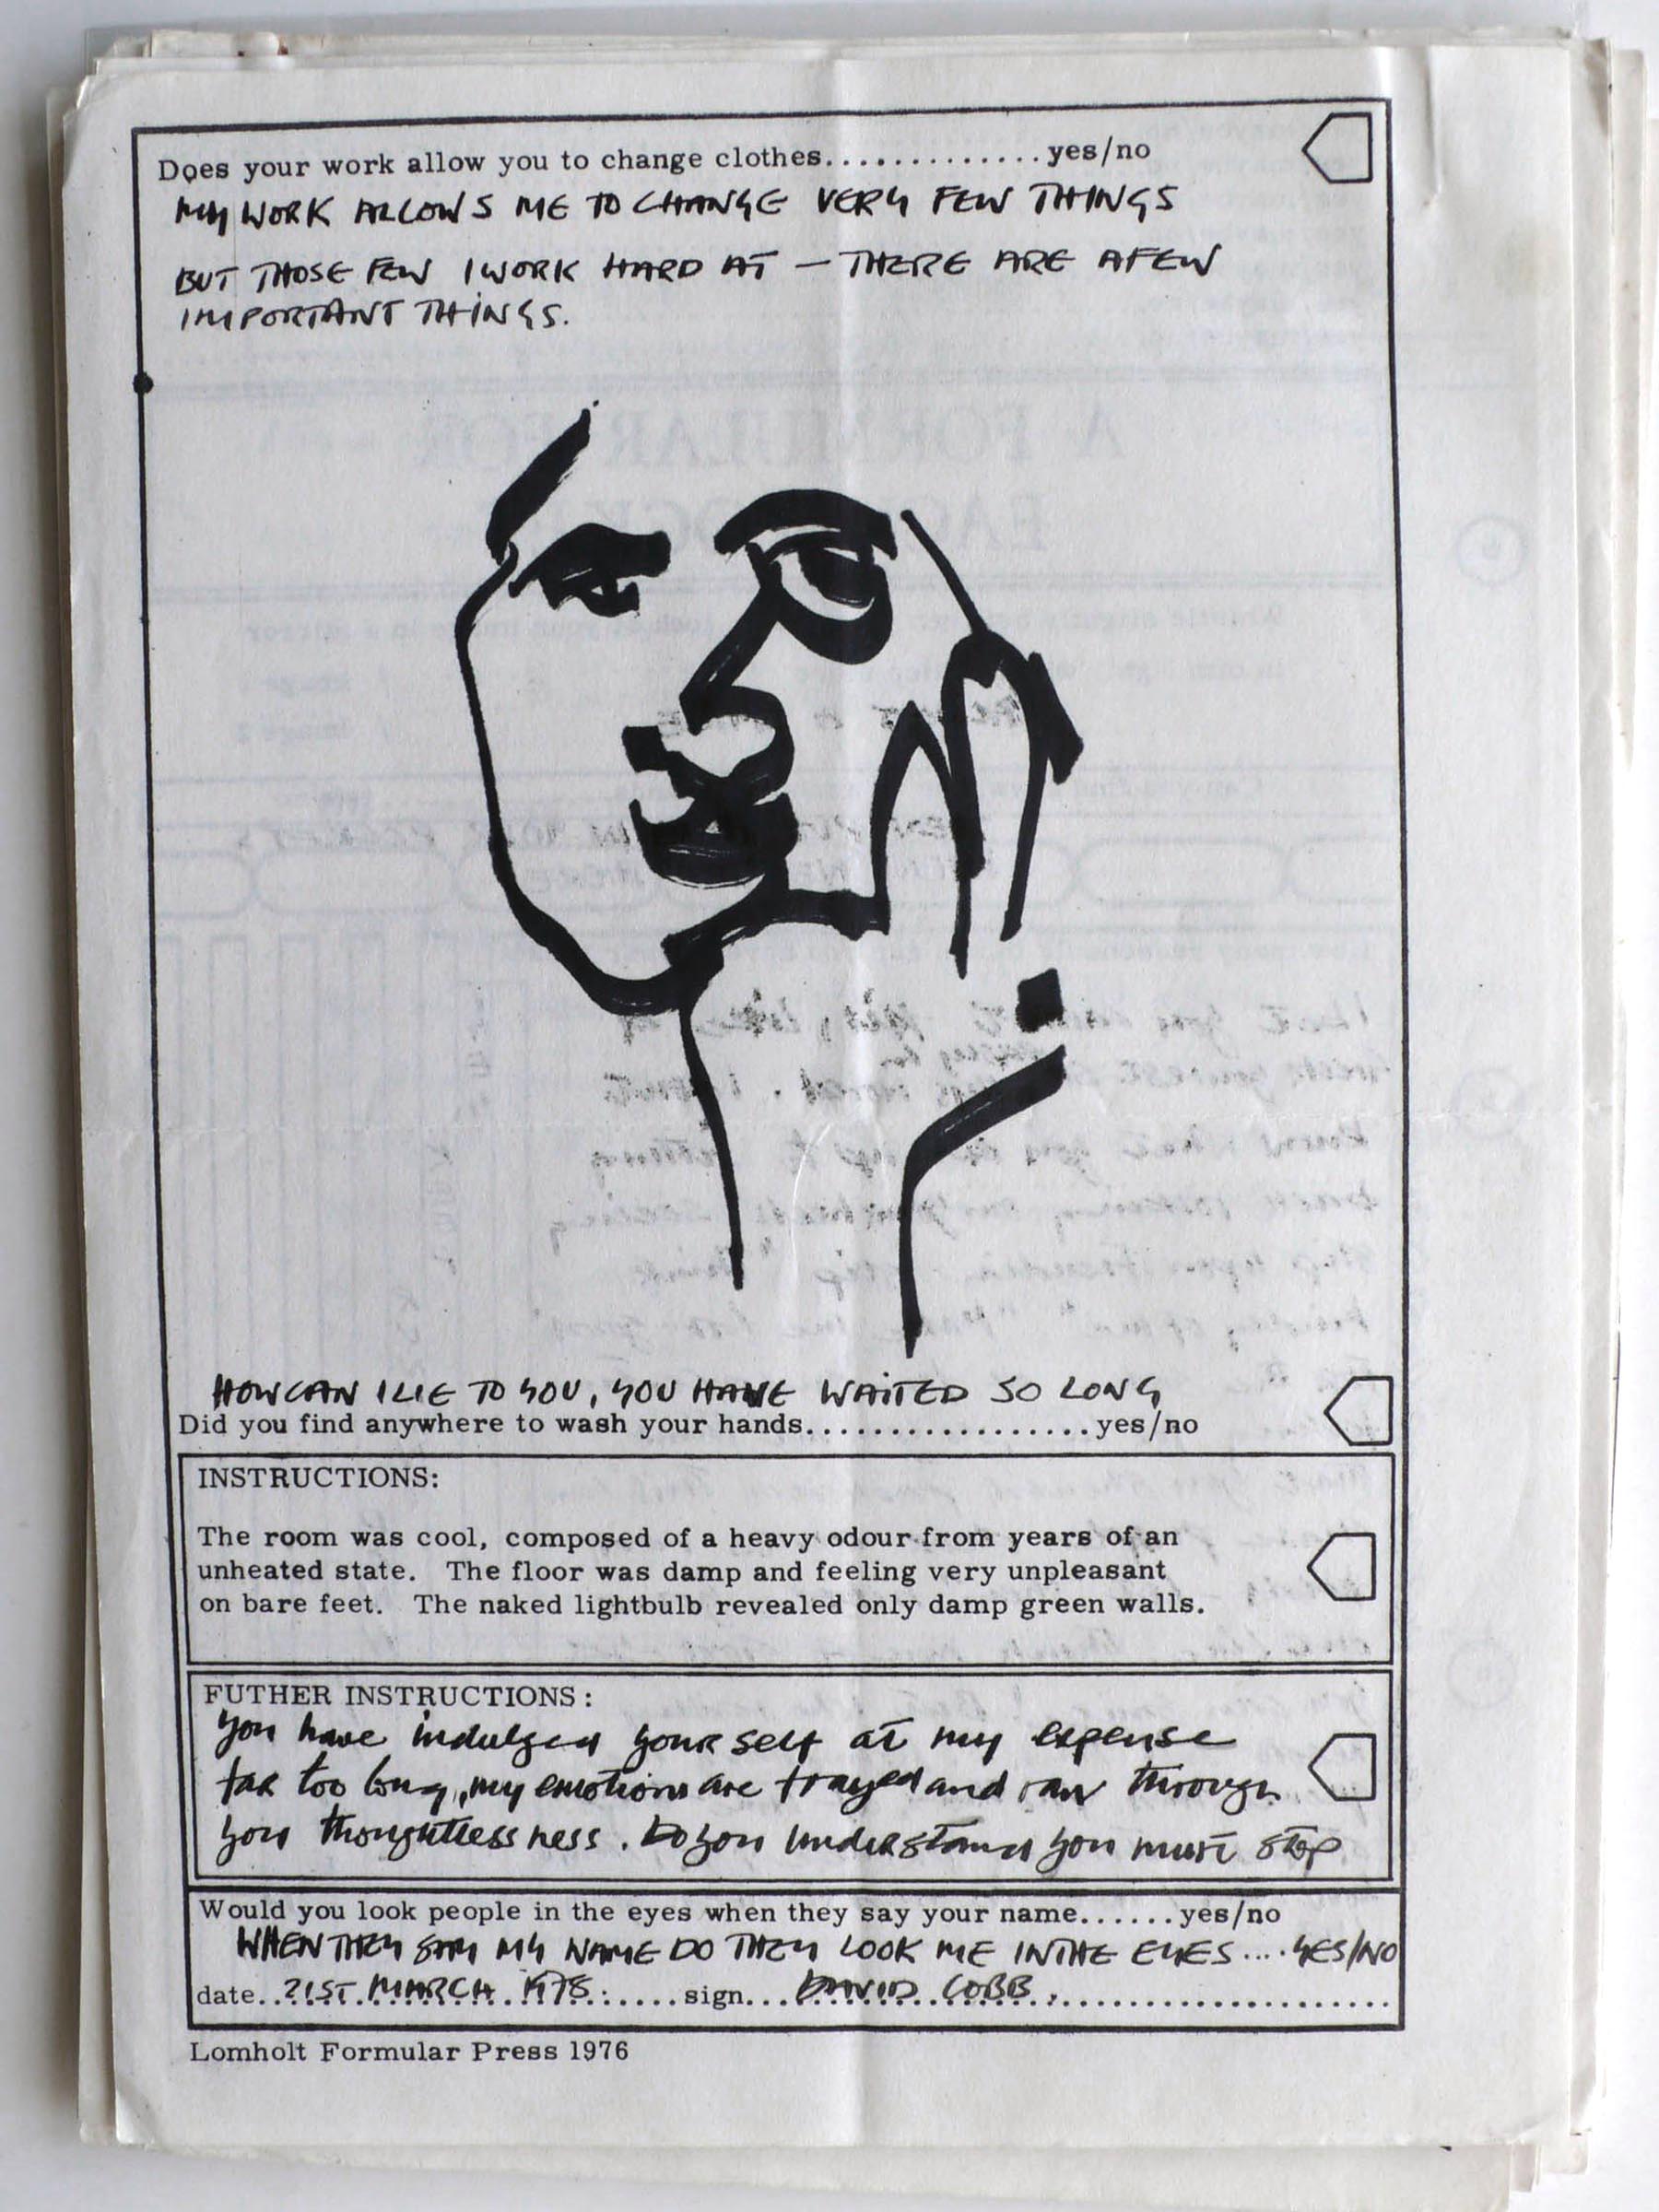 Does your work allow you to change clothes.............yes/no
MY WORK ALLOWS ME TO CHANGE VERY FEW THINGS
BUT THOSE FEW I WORK HARD AT — THERE ARE A FEW
IMPORTANT THINGS.
HOW CAN I LIE TO YOU, YOU HAVE WAITED SO LONG
Did you find anywhere to wash your hands.................yes/no
INSTRUCTIONS:
The room was cool, composed of a heavy odour from years of an
unheated state. The floor was damp and feeling very unpleasant
on bare feet. The naked lightbulb revealed only damp green walls.
FUTHER INSTRUCTIONS:
you have indulged yourself at my expense
far too long, my emotions are frayed and raw through
your thoughtlessness. Do you understand you must stop
Would you look people in the eyes when they say your name......yes/no
WHEN THEY SAY MY NAME DO THEY LOOK ME IN THE EYES....YES/NO
date..21ST MARCH 1978......sign...DAVID COBB.....................
Lomholt Formular Press 1976